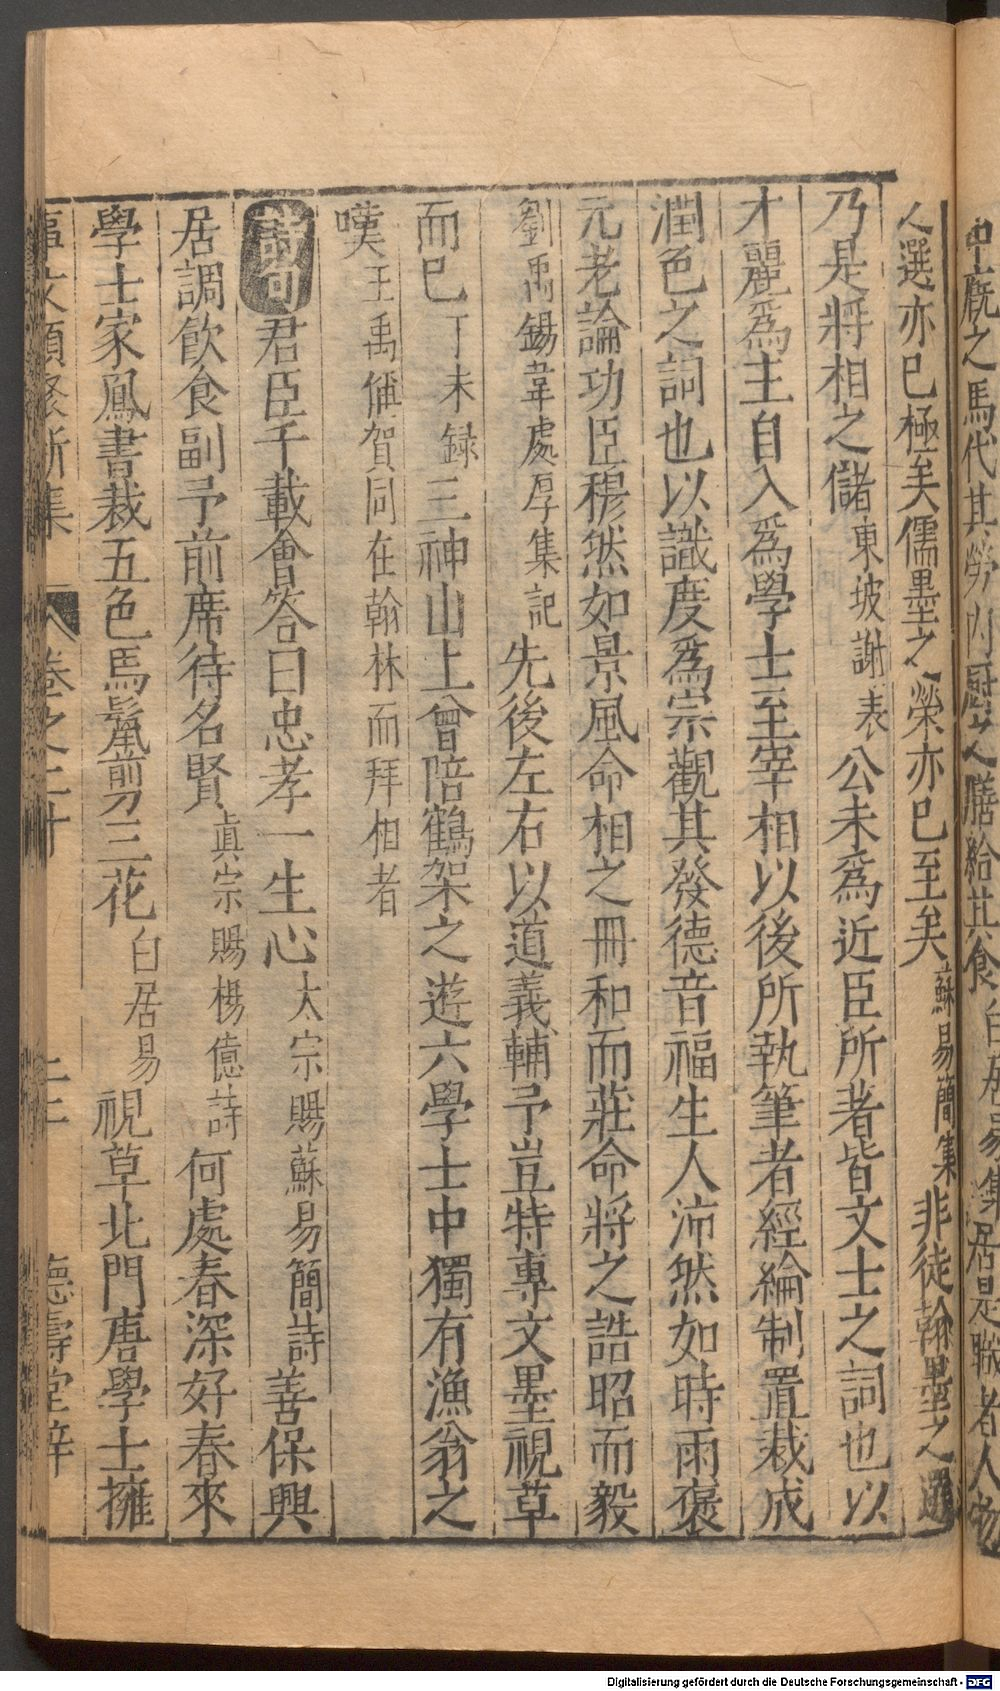 中廐之馬代其勞内厨之膳給其食白居易集居是職者人物
人選亦巳極矣儒墨之榮亦巳至矣蘇易簡集非徒翰墨之選
乃是將相之儲東坡謝表公未爲近臣所著皆文士之詞也以
才麗爲主自入爲學士至宰相以後所執筆者經綸制置裁成
潤色之詞也以識度爲宗觀其發德音福生人沛然如時雨襃
元老論功臣穆然如景風命相之冊和而莊命將之誥昭而毅
劉禹錫韋處厚集記先後左右以道義輔予豈特專文墨視草
而巳丁未録三神山上曾陪鶴架之遊六學士中獨有漁翁之
嘆王禹偁賀同在翰林而拜相者
詩句君臣千載會答曰忠孝一生心太宗賜蘇易簡詩善保興
居調飲食副予前席待名賢眞宗賜楊億詩何處春深好春來
學士家鳳書裁五色馬鬛剪三花白居易視草北門唐學士擁
事文類聚新集 卷之二十 二十二 德壽堂梓
Digitalisierung gefördert durch die Deutsche Forschungsgemeinschaft - DFG